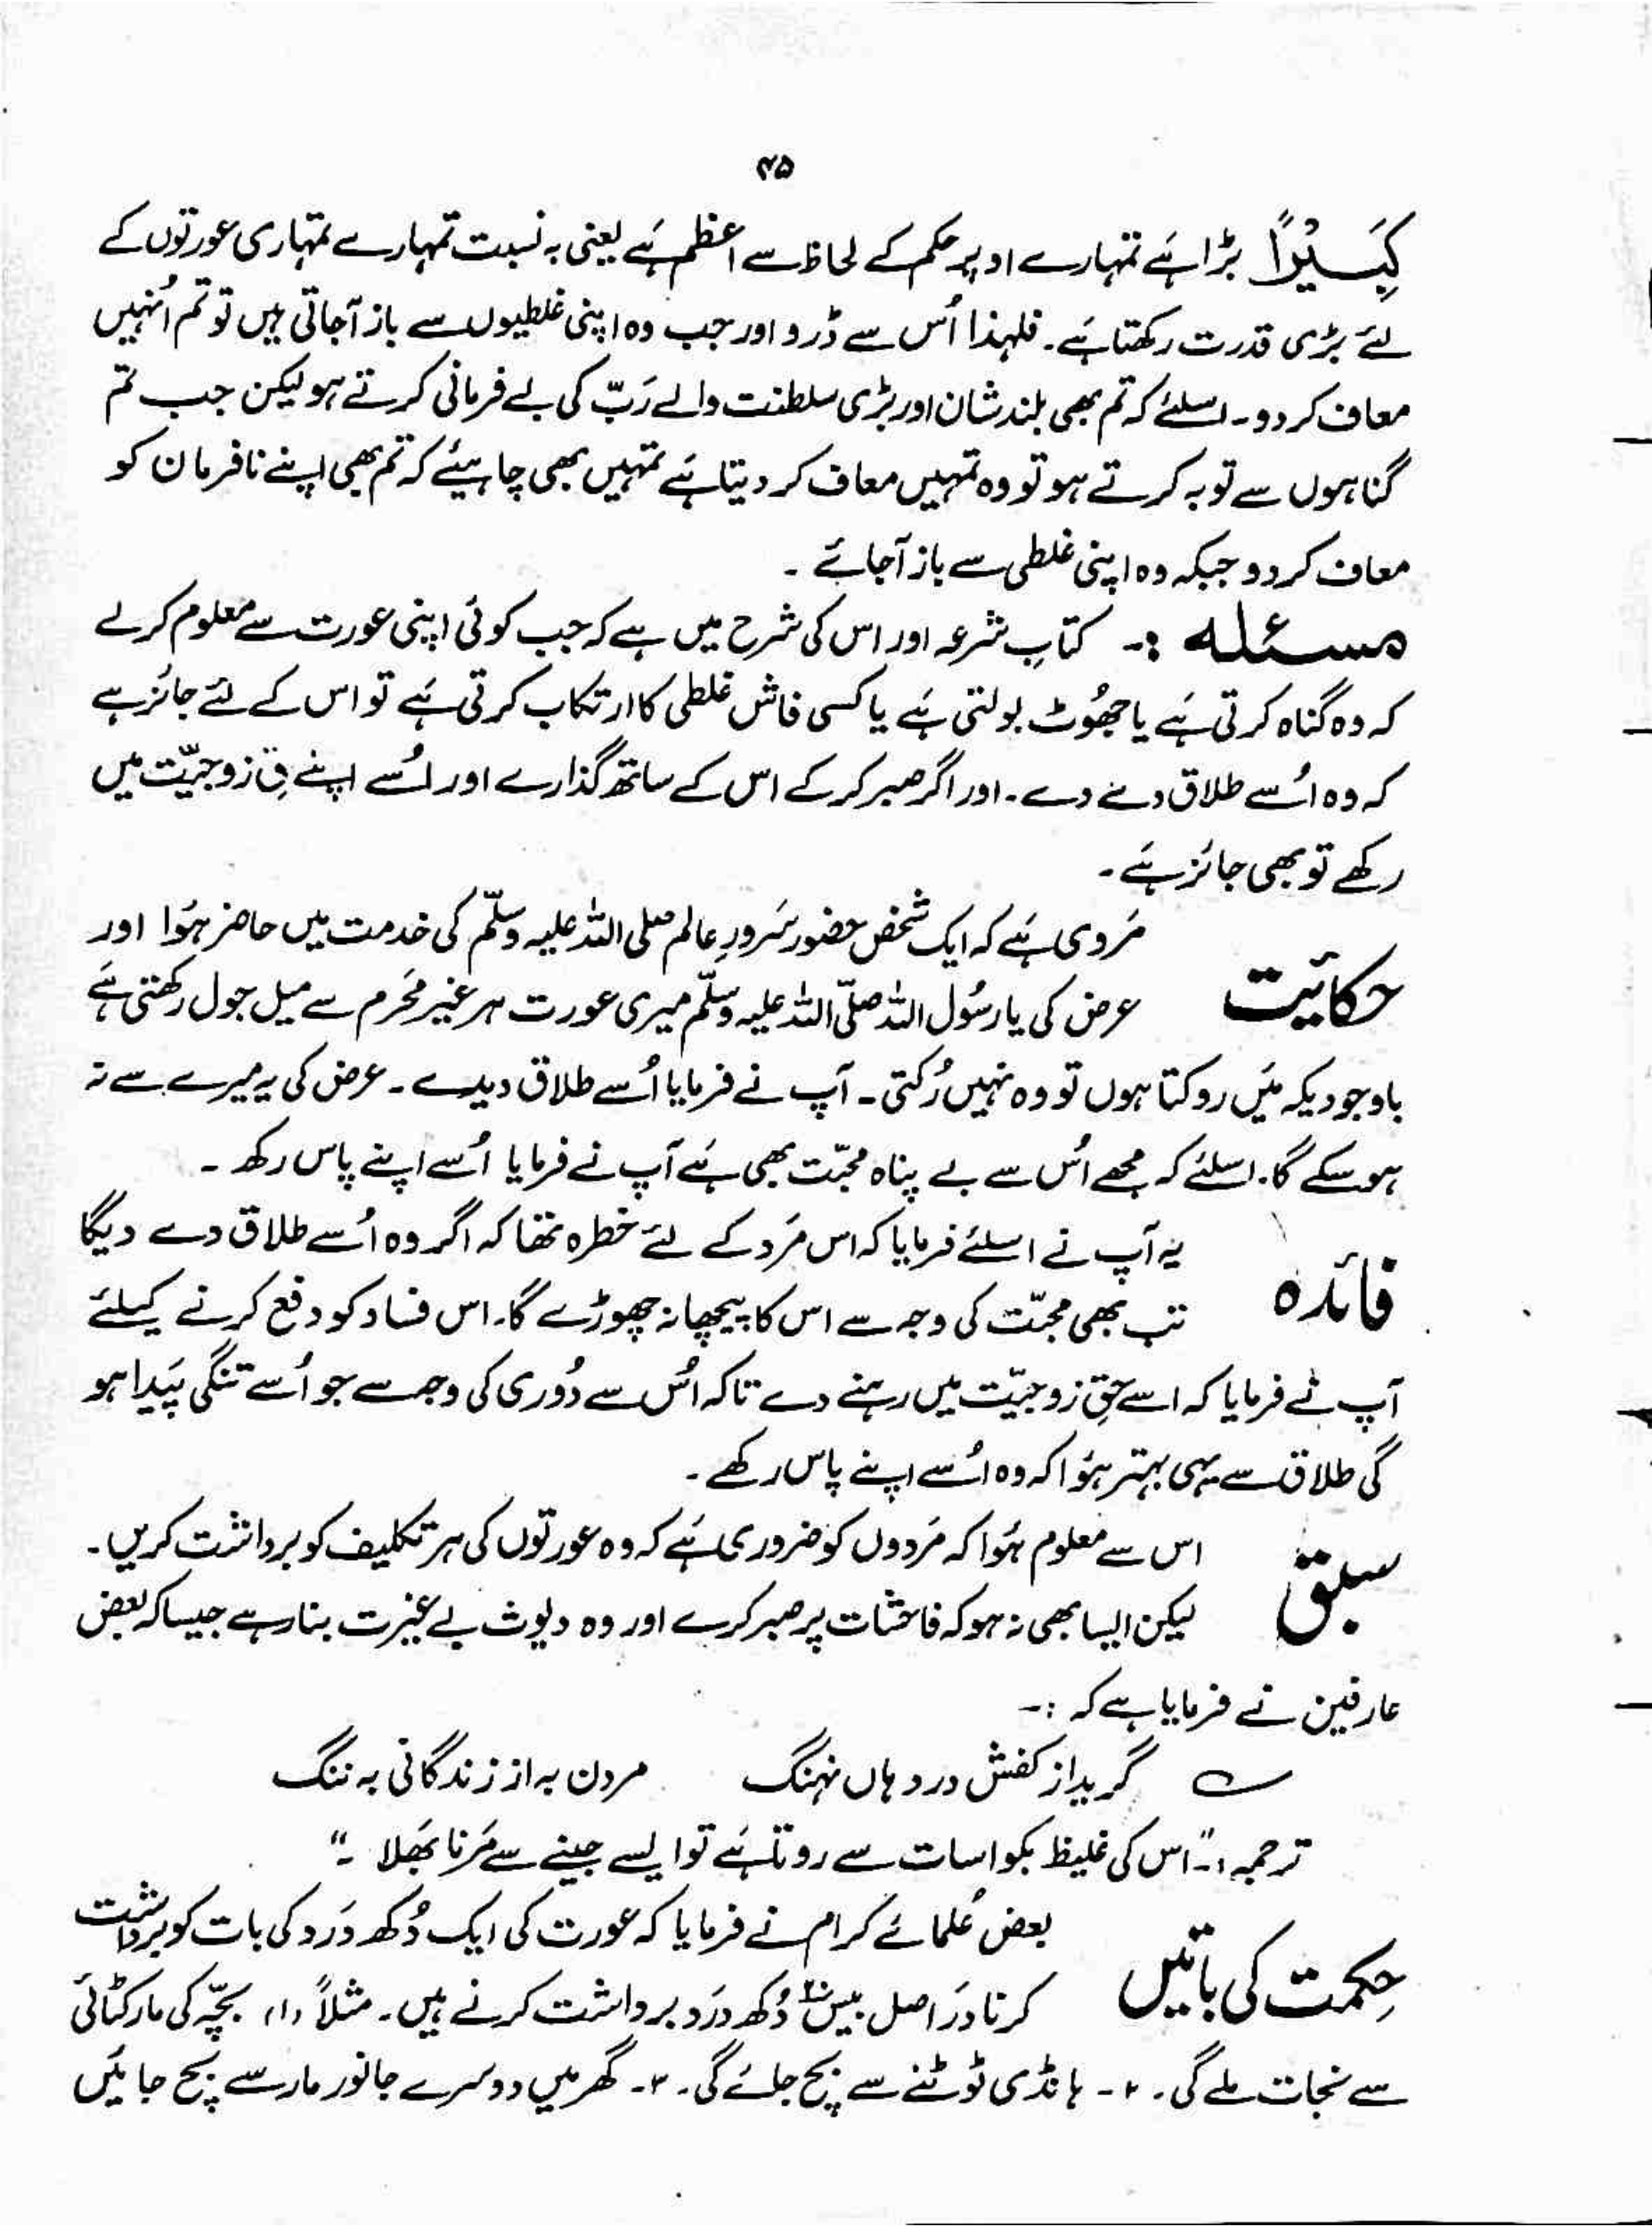 ۴۵
کَبِیْرًا بڑا ہَے تمہارے اوپر حکم کے لحاظ سے اعظم ہَے یعنی بہ نسبت تمہارے تمہاری عورتوں کے
لئے بڑی قدرت رکھتا ہَے۔ فلہٰذا اُس سے ڈرو اور جب وہ اپنی غلطیوں سے باز آجاتی ہیں تو تم اُنہیں
معاف کر دو۔ اسلئے کہ تم بھی بلند شان اور بڑی سلطنت والے رَبّ کی بے فرمانی کرتے ہو لیکن جب تم
گناہوں سے توبہ کرتے ہو تو وہ تمہیں معاف کر دیتا ہَے تمہیں بھی چاہیئے کہ تم بھی اپنے نافرمان کو
معاف کر دو جبکہ وہ اپنی غلطی سے باز آجائے ۔
مسئلہ :۔ کتابِ شرعہ اور اس کی شرح میں ہے کہ جب کوئی اپنی عورت سے معلوم کر لے
کہ وہ گناہ کرتی ہَے یا جھُوٹ بولتی ہَے یا کسی فاش غلطی کا ارتکاب کرتی ہَے تو اس کے لئے جائز ہے
کہ وہ اُسے طلاق دے دے۔ اور اگر صبر کر کے اس کے ساتھ گذارے اور اُسے اپنے قِ زوجیّت میں
رکھے تو بھی جائز ہَے ۔
حکائیت
مَروی ہَے کہ ایک شخص حضور سَرورِ عالم صلی اللہ علیہ وسلّم کی خدمت میں حاضر ہُوا اور
عرض کی یا رسُول اللہ صلّی اللہ علیہ وسلّم میری عورت ہر غیر مَحرم سے میل جول رکھتی ہَے
باوجودیکہ مَیں روکتا ہوں تو وہ نہیں رُکتی ۔ آپ نے فرمایا اُسے طلاق دیدے ۔ عرض کی یہ میرے سے نہ
ہو سکے گا۔ اسلئے کہ مجھے اُس سے بے پناہ محبّت بھی ہَے آپ نے فرمایا اُسے اپنے پاس رکھ ۔
فائدہ
یہ آپ نے اسلئے فرمایا کہ اس مَرد کے لئے خطرہ تھا کہ اگر وہ اُسے طلاق دے دیگا
تب بھی محبّت کی وجہ سے اس کا پیچھا نہ چھوڑے گا۔ اس فساد کو دفع کرنے کیلئے
آپ نے فرمایا کہ اسے حقِ زوجیّت میں رہنے دے تاکہ اُس سے دُوری کی وجہ سے جو اُسے تنگی پَیدا ہو
گی طلاق سے یہی بہتر ہؤا کہ وہ اُسے اپنے پاس رکھے ۔
سبق
اس سے معلوم ہُوا کہ مَردوں کو ضروری ہَے کہ وہ عورتوں کی ہر تکلیف کو برداشت کریں ۔
لیکن ایسا بھی نہ ہو کہ فاحشات پر صبر کرے اور وہ دیوث بے غیرت بنا رہے جیسا کہ بعض
عارفین نے فرمایا ہے کہ :۔
؎ گریداز کفش در دہاں نہنگ مردن بہ از زندگانی بہ ننگ
ترجمہ :۔ "اس کی غلیظ بکواسات سے روتا ہَے تو ایسے جینے سے مَرنا بَھلا ۔"
حِکمت کی باتیں
بعض عُلمائے کرام نے فرمایا کہ عورت کی ایک دُکھ دَرد کی بات کو برداشت
کرنا دَر اصل بیس۲۰ دُکھ درَد برداشت کرنے ہیں ۔ مثلاً (۱) بچّہ کی مار کٹائی
سے نجات ملے گی ۔ ۲ ۔ ہانڈی ٹوٹنے سے بچ جائے گی ۔ ۳ ۔ گھر میں دوسرے جانور مار سے بچ جائیں